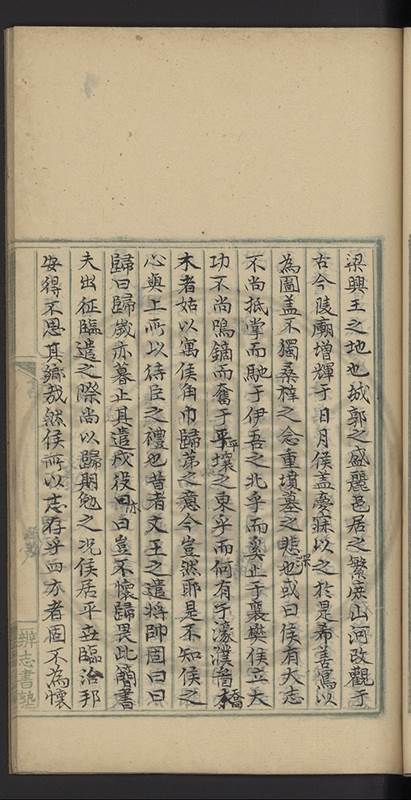 梁興王之地也城郭之盛麗邑居之繁庶山河改觀于
古今陵廟增輝于日月侯蓋夢寐以之於是希善寫以
為圖蓋不獨桑梓之念重墳墓之悲深也或曰侯有大志
不尚抵掌而馳于伊吾之北乎而奚止于襄樊侯立大
功不尚鳴鏑而奮于平壤之東乎而何有于濠濮喬
木者姑以寓侯角巾歸第之意今豈然耶是不知侯之
心與上所以待臣之禮也昔者文王之遣將帥固曰曰
歸曰歸歲亦暮止其遣戍役亦曰豈不懷歸畏此簡書
夫出征臨遣之際尚以歸期勉之况侯居平世臨治邦
安得不思其鄉哉然侯所以志存乎四方者固不為懷
辨志書塾